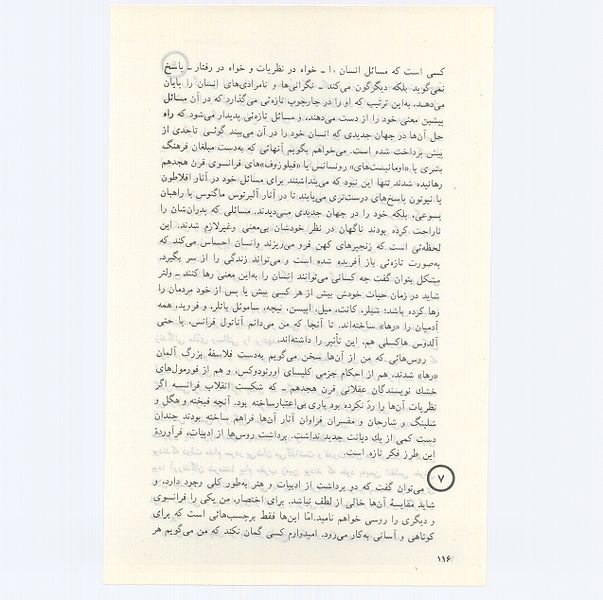 کسی است که مسائل انسان را ـ خواه در نظریات و خواه در رفتار ـ پاسخ
نمی‌گوید بلکه دیگرگون می‌کند ـ نگرانی‌ها و نامرادی‌های انسان را پایان
می‌دهد. به‌این ترتیب که او را در چارچوب تازه‌ئی می‌گذارد که در آن مسائل
پیشین معنی خود را از دست می‌دهند، و مسائل تازه‌ئی پدیدار می‌شود که راه
حل آن‌ها در جهان جدیدی که انسان خود را در آن می‌بیند گوئی تاحدی از
پیش پرداخت شده است. می‌خواهم بگویم آنهائی که به‌دست مبلغان فرهنگ
بشری یا «اومانیست‌های» رونسانس یا «فیلوزوف»های فرانسوی قرن هجدهم
رهانیده شدند تنها این نبود که می‌پنداشتند برای مسائل خود در آثار افلاطون
یا نیوتون پاسخ‌های درست‌تری می‌یابند تا در آثار آلبرتوس ماگنوس یا راهبان
یسوعی، بلکه خود را در جهان جدیدی می‌دیدند. مسائلی که پدران‌شان را
ناراحت کرده بودند ناگهان در نظر خودشان بی‌معنی وغیرلازم شدند. این
لحظه‌ئی است که زنجیرهای کهن فرو می‌ریزند وانسان احساس می‌کند که
به‌صورت تازه‌ئی باز آفریده شده است و می‌تواند زندگی را از سر بگیرد.
مشکل بتوان گفت چه کسانی می‌توانند انسان را به‌این معنی رها کنند ـ ولتر
شاید در زمان حیات خودش بیش از هر کسی پیش یا پس از خود مردمان را
رها کرده باشد؛ شیلر، کانت، میل، ایبسن، نیچه، ساموئل باتلر، و فروید، همه
آدمیان را «رها» ساخته‌اند. تا آنجا که من می‌دانم آناتول فرانس، یا حتی
آلدوس هاکسلی هم، این تأثیر را داشته‌اند.
روس‌هائی که من از آن‌ها سخن می‌گویم به‌دست فلاسفهٔ بزرگ آلمان
«رها» شدند، هم از احکام جزمی کلیسای اورتودوکس، و هم از فورمول‌های
خشك نویسندگان عقلانی قرن هجدهم ـ که شکست انقلاب فرانسه اگر
نظریات آن‌ها را ردّ نکرده بود باری بی‌اعتبارساخته بود. آنچه فیخته و هگل و
شلینگ و شارحان و مفسران فراوان آثار آن‌ها فراهم ساخته بودند چندان
دست کمی از یك دیانت جدید نداشت. برداشت روس‌ها از ادبیات، فرآوردهٔ
این طرز فکر تازه است.
۷
می‌توان گفت که دو برداشت از ادبیات و هنر به‌طور کلی وجود دارد، و
شاید مقایسهٔ آن‌ها خالی از لطف نباشد. برای اختصار، من یکی را فرانسوی
و دیگری را روسی خواهم نامید.امّا این‌ها فقط برچسب‌هائی است که برای
کوتاهی و آسانی به‌کار می‌رود. امیدوارم کسی گمان نکند که من می‌گویم هر
۱۱۶